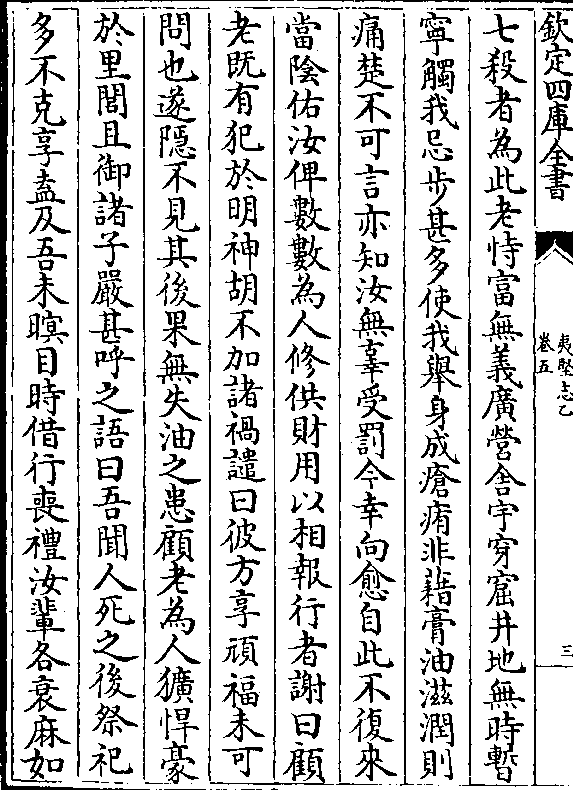 欽定四庫全書
夷堅志乙
卷五
三
七殺者為此老恃富無義廣營舍宇穿窟井地無時暫
寧觸我忌步甚多使我舉身成瘡痏非藉膏油滋潤則
痛楚不可言亦知汝無辜受罰今幸向愈自此不復來
當陰佑汝俾數數為人修供財用以相報行者謝曰顧
老既有犯於明神胡不加諸禍譴曰彼方享頑福未可
問也遂隱不見其後果無失油之患顧老為人獷悍豪
於里閭且御諸子嚴甚呼之語曰吾聞人死之後祭祀
多不克享盍及吾未瞑目時借行喪禮汝輩各衰麻如